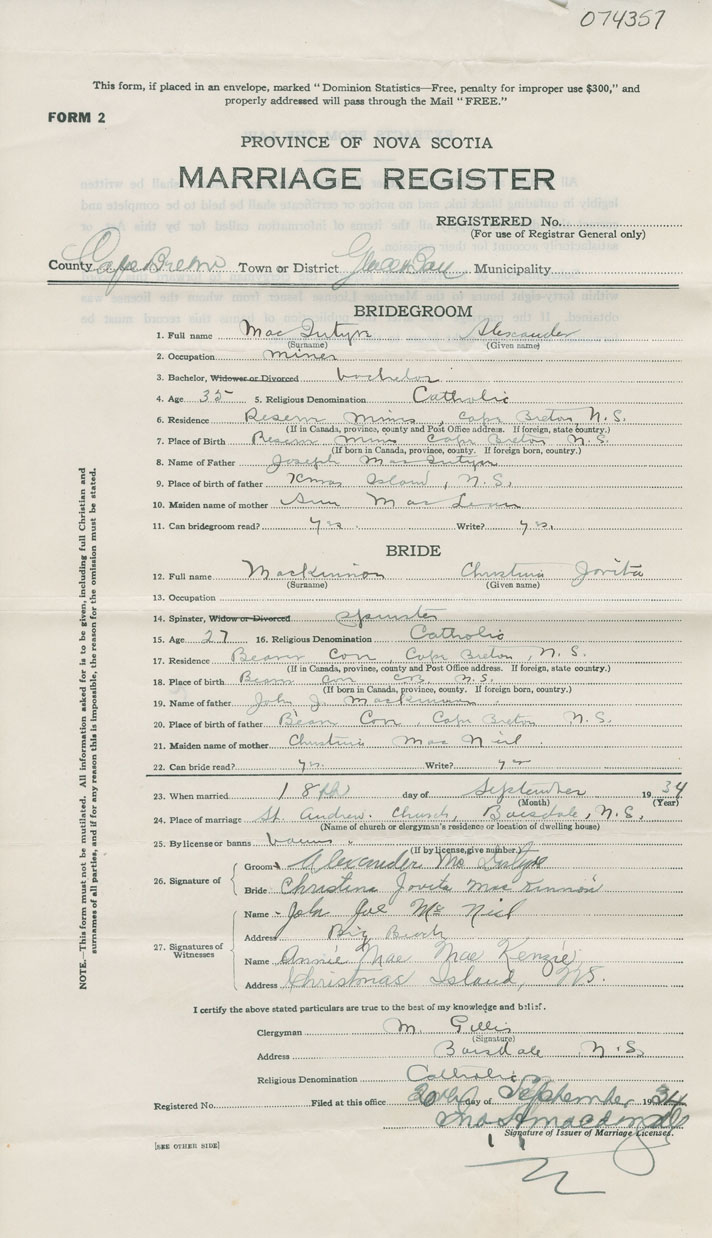 074357
This form, if placed in an envelope, marked "Dominion Statistics—Free, penalty for improper use $300," and
properly addressed will pass through the Mail "FREE."
FORM 2
PROVINCE OF NOVA SCOTIA
MARRIAGE REGISTER
REGISTERED No.
(For use of Registrar General only)
County Cape Breton Town or District Glace Bay Municipality
BRIDEGROOM
1. Full name MacIntyre Alexander
(Surname) (Given name)
2. Occupation miner
3. Bachelor, Widower or Divorced bachelor
4. Age 35 5. Religious Denomination Catholic
6. Residence Reserve Mines, Cape Breton, N.S.
(If in Canada, province, county and Post Office address. If foreign, state country.)
7. Place of Birth Reserve Mines Cape Breton N.S.
(If born in Canada, province, county. If foreign born, country.)
8. Name of Father Joseph MacIntyre
9. Place of birth of father Xmas Island, N.S.
10. Maiden name of mother Ann MacLean
11. Can bridegroom read? yes. Write? yes.
BRIDE
12. Full name MacKinnon Christina Jovita
(Surname) (Given name)
13. Occupation
14. Spinster, Widow or Divorced spinster
15. Age 27 16. Religious Denomination Catholic
17. Residence Beaver Cove, Cape Breton, N.S.
(If in Canada, province, county and Post Office address. If foreign, state country.)
18. Place of birth Beaver Cove C.B. N.S.
(If born in Canada, province, county. If foreign born, country.)
19. Name of father John J. MacKinnon
20. Place of birth of father Beaver Cove, Cape Breton N.S.
21. Maiden name of mother Christina MacNeil
22. Can bride read? yes. Write? yes
23. When married 18th day of September 1934
(Month) (Year)
24. Place of marriage St. Andrew's Church, Boisdale, N.S.
(Name of church or clergyman's residence or location of dwelling house)
25. By license or banns banns.
(If by license, give number.)
26. Signature of
Groom Alexander McIntyre
Bride Christina Jovita MacKinnon
27. Signatures of Witnesses
Name John Joe McNeil
Address Big Beach
Name Annie Mae MacKenzie
Address Christmas Island, N.S.
I certify the above stated particulars are true to the best of my knowledge and belief.
Clergyman M. Gillis
(Signature)
Address Boisdale N.S.
Religious Denomination Catholic
Registered No. Filed at this office 20th day of September 1934
Signature of Issuer of Marriage Licenses.
[SEE OTHER SIDE]
NOTE.—This form must not be mutilated. All information asked for is to be given, including full Christian and
surnames of all parties, and if for any reason this is impossible, the reason for the omission must be stated.